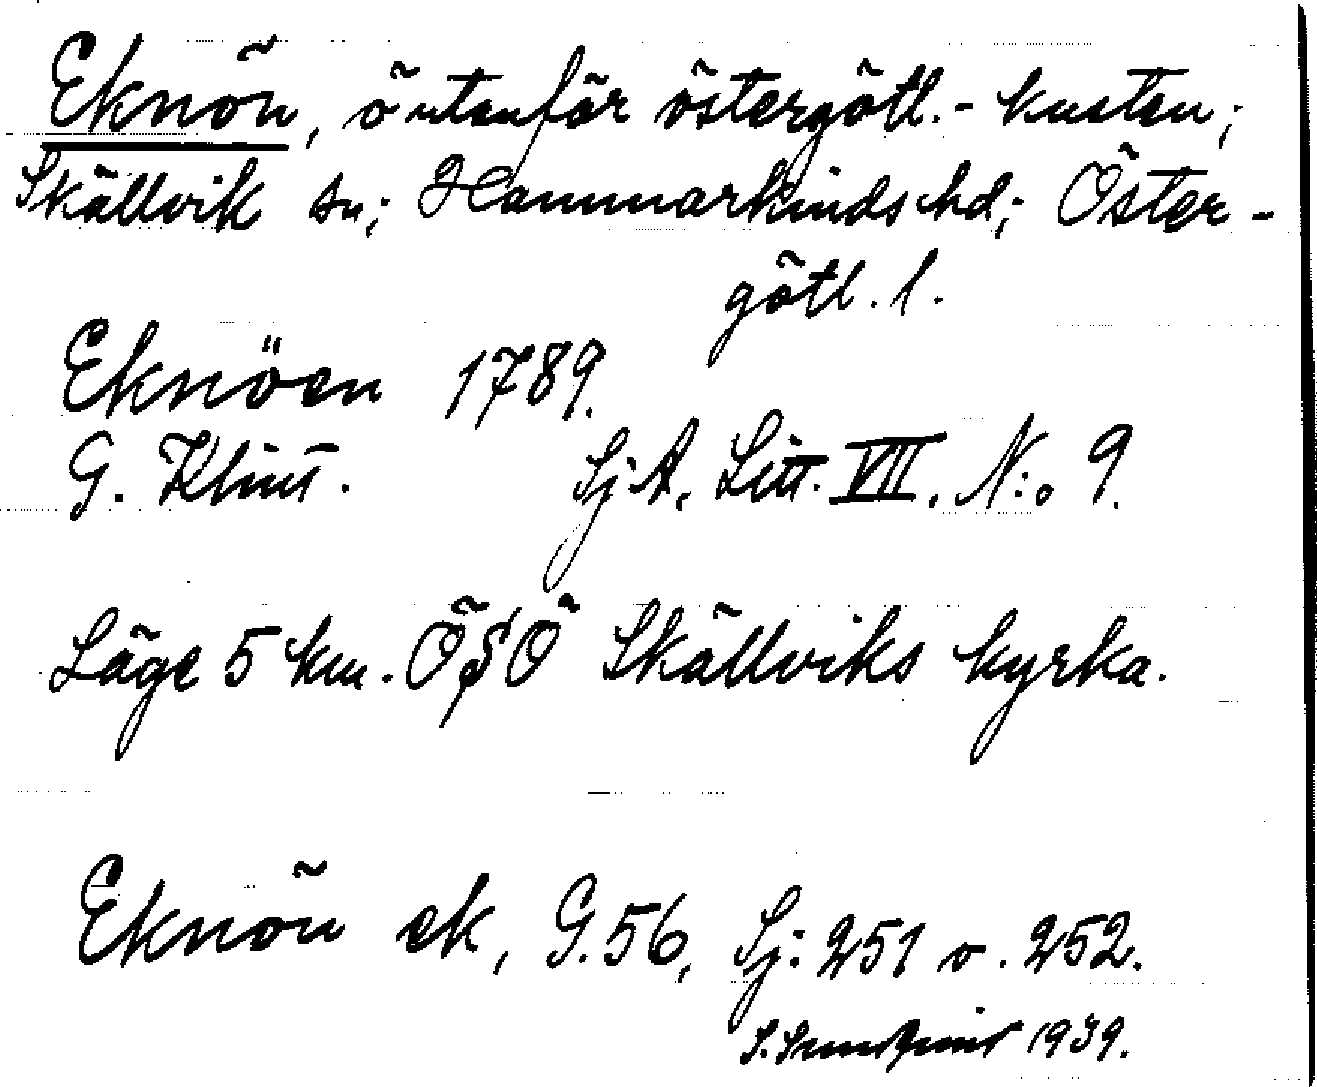 Eknön, ö utanför östergötl.- kusten;
Skällvik sn; Hammarkinds hd; Öster-
götl. l.
Eknöen 1789.
G. Klint. SjA, Litt. VII. N:o 9.
Läge 5 km. ÖSÖ Skällviks kyrka.
Eknön ek, G.56, Sj: 251 o. 252.
1939.